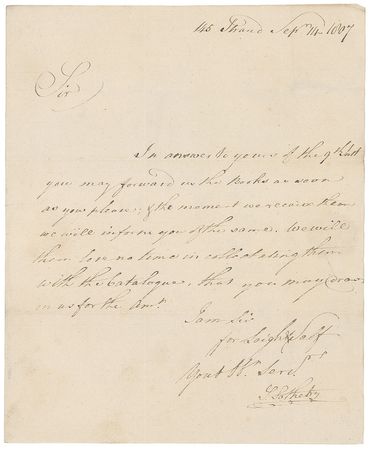 145 Strand Sepr 14 1807
Sir
In answer to yours of the 9th Inst
you may forward us the Books as soon
as you please; & the moment we receive them
we will inform you of the same. We will
then lose no time in collectating them
with the Catalogue, that you may draw
on us for the Amt.
I am Sir
for Leigh & Self
Your Hl Servt
S Sotheby